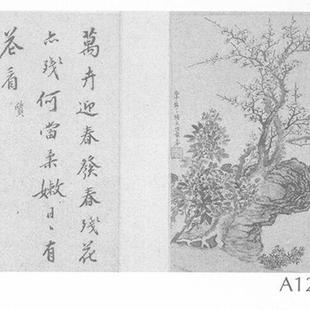 萬卉迎春發春殘花
亦殘何當柔嫩日〻有
花看
質
A12